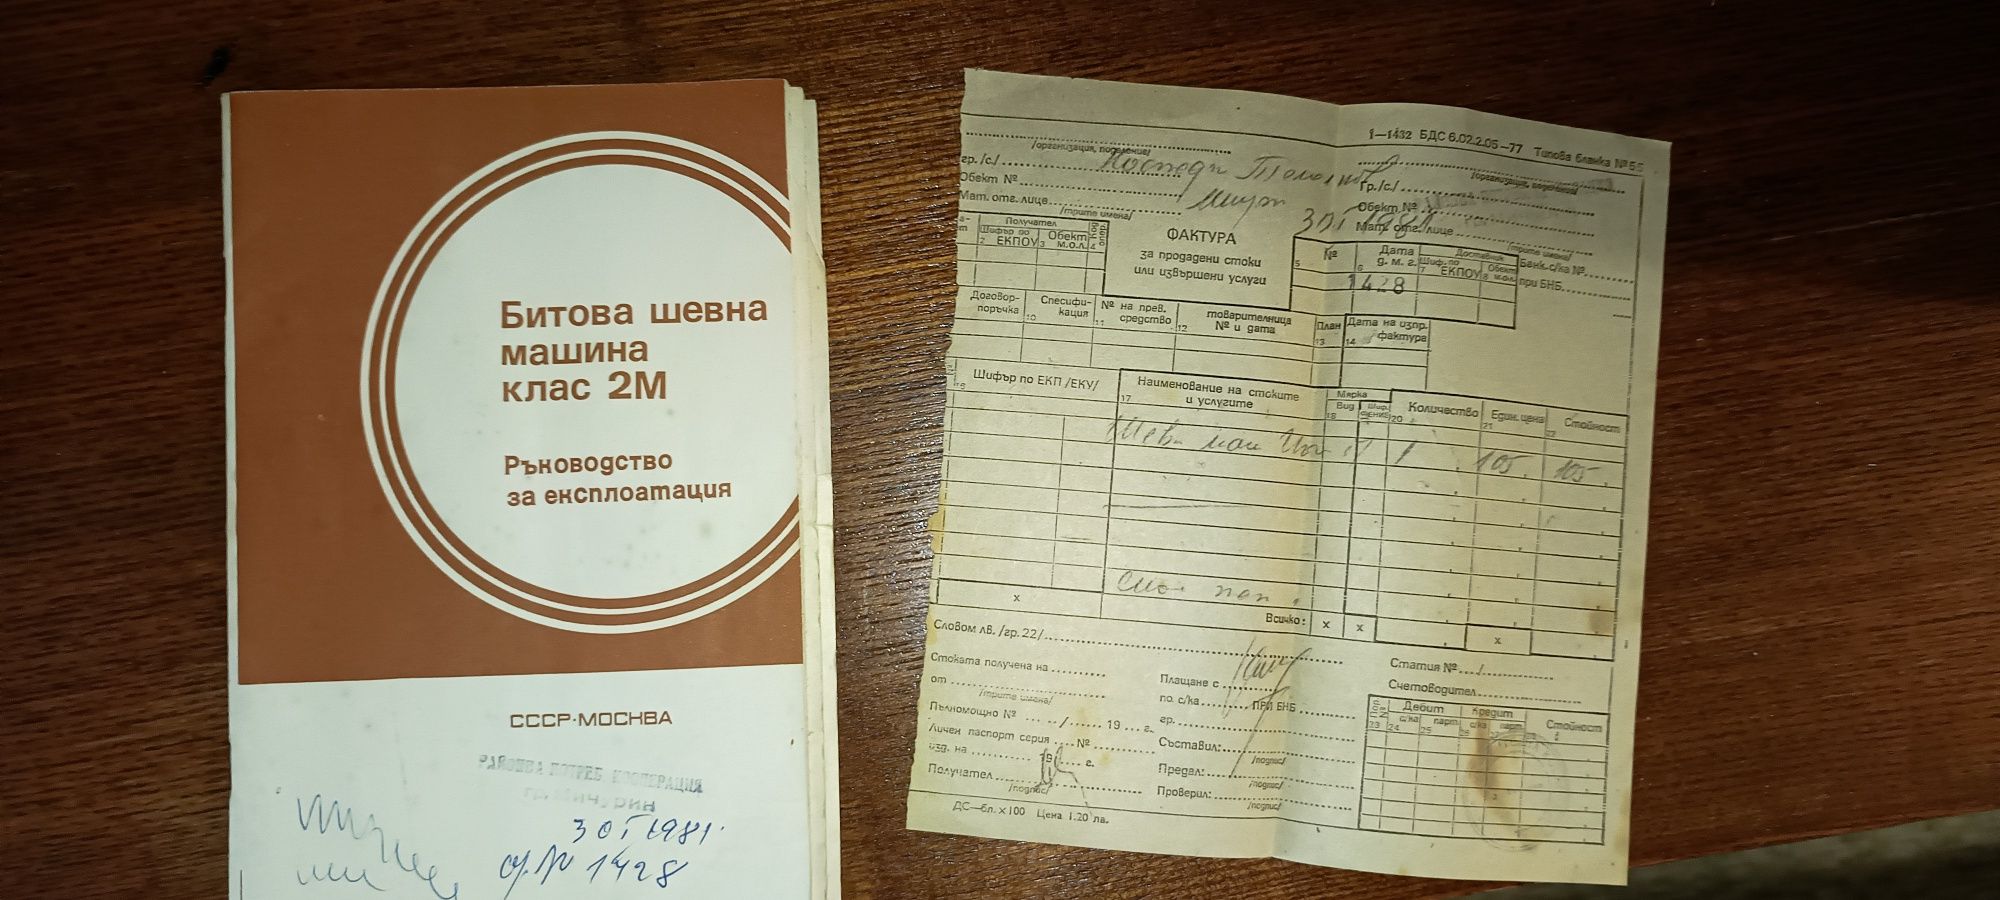 Битова шевна
машина
клас 2М
Ръководство
за експлоатация
СССР·МОСКВА
РАЙОННА ПОТРЕБ. КООПЕРАЦИЯ
гр. Мичурин
30 I 1981.
1428
1—1432 БДС 6.02.2.05—77 Типова бланка № 55
/организация, поделение/
/организация, поделение/
гр. /с/
Гр./с/
Обект №
Обект №
Мат. отг. лице
Мат. отг. лице
/трите имена/
/трите имена/
30 I 1981
Получател
Шифър по ЕКПОУ
Обект м.о.л.
Код опер.
ФАКТУРА
за продадени стоки
или извършени услуги
№
Дата
д. м. г.
Доставчик
Шиф. по ЕКПОУ
Обект м.о.л.
Банк. с/ка №
при БНБ
1428
Договор-поръчка
Спецификация
№ на прев. средство
товарителница № и дата
План
Дата на изпр. фактура
Шифър по ЕКП /ЕКУ/
Наименование на стоките
и услугите
Мярка
Вид
Количество
Един. цена
Стойност
1 105. 105.
х
Всичко: х х х
Словом лв. /гр. 22/
Статия №
Стоката получена на
Плащане с
Счетоводител
от
по с/ка ПРИ БНБ
/трите имена/
Пълномощно № / 19 г.
гр.
Дебит Кредит Стойност
с/ка парт. с/ка парт.
Личен паспорт серия №
Съставил:
изд. на 19 г.
/подпис/
Получател
Предал:
/подпис/
/подпис/
Проверил:
/подпис/
ДС—бл. х 100 Цена 1.20 лв.